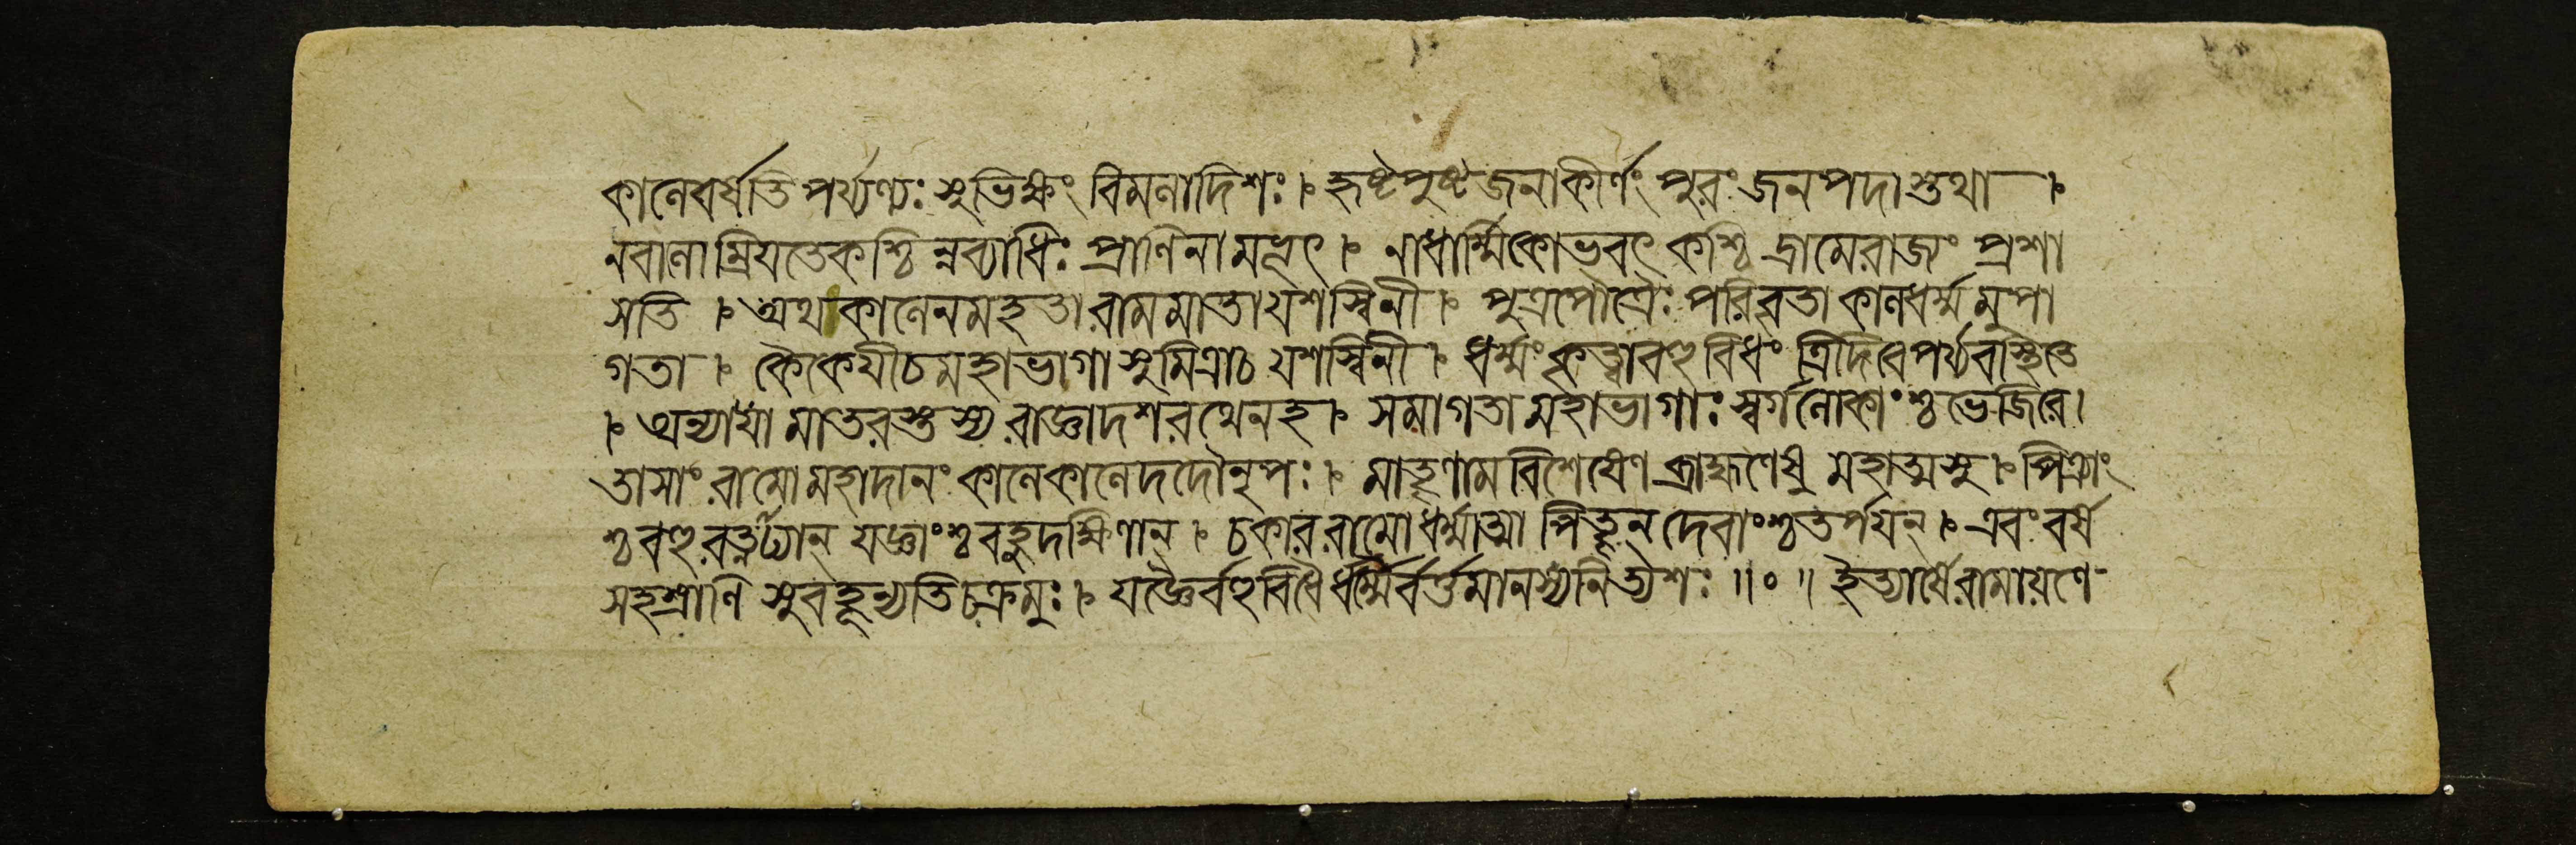 কালেবর্ষতি পর্য্যণ্যঃ সুভিক্ষং বিমলাদিশঃ । হৃষ্টপুষ্টজনাকীর্ণং পুরং জনপদাস্তথা ।
নবালাম্রিযতেকশ্চি ন্নব্যাধিঃ প্রাণিনামভূৎ । নাধার্ম্মিকোভবৎ কশ্চি দ্রামেরাজ্যং প্রশা
সতি । অথকালেনমহতা রামমাতাযশস্বিনী । পুত্রপৌত্রৈঃ পরিবৃতা কালধর্ম্মমুপা
গতা । কৈকেযীচমহাভাগা সুমিত্রাচ যশস্বিনী । ধর্ম্মং কৃত্বাবহুবিধং ত্রিদিবেপর্য্যবস্থিতে
। অন্যাযা মাতরস্তস্য রাজ্ঞাদশরথেনহ । সমাগতামহাভাগাঃ স্বর্গলোকাংশ্চভেজিরে ।
তাসাং রামোমহাদানং কালেকালেদদৌনৃপঃ । মাতৄণামবিশেষেণ ব্রাহ্মণেষু মহাত্মসু । পিত্র্যাং
শ্চবহুরত্নাঢ্যান্ যজ্ঞাংশ্চবহুদক্ষিণান্ । চকাররামোধর্ম্মাত্মা পিতৄন্ দেবাংশ্চতর্পযন্ । এবং বর্ষ
সহশ্রাণি সুবহূন্যতিচক্রমুঃ । যজ্ঞৈর্বহুবিধৈ র্ধর্ম্মৈর্বর্ত্তমানস্যনিত্যশঃ ॥ ० ॥ ইত্যার্ষেরামাযণে